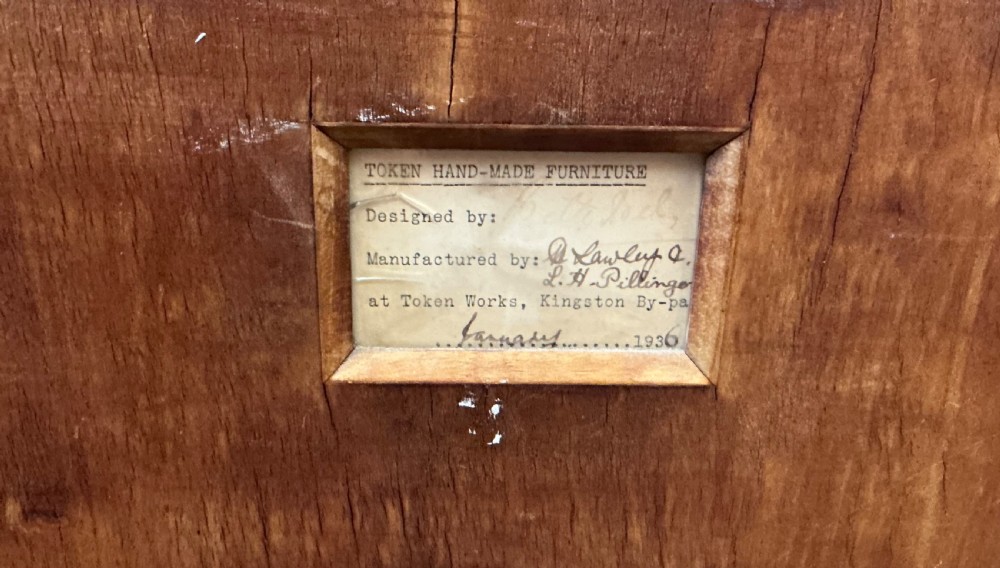 TOKEN HAND-MADE FURNITURE
Designed by:
Manufactured by: Lawley &.
L. H. Pillinger
at Token Works, Kingston By-pa
January 1936